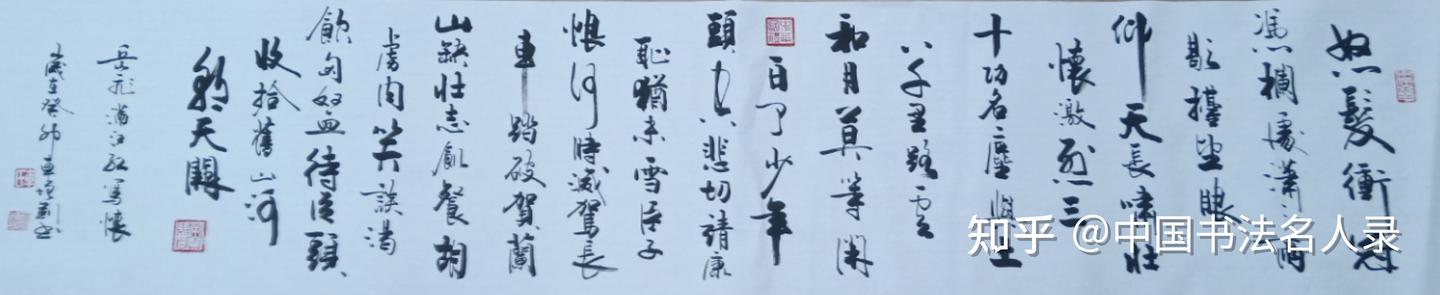 怒髮衝冠
憑欄處瀟瀟雨
歇擡望眼
仰天長嘯壯
懷激烈三
十功名塵與土
八千里路雲
和月莫等閑
白了少年
頭空悲切靖康
恥猶未雪臣子
恨何時滅駕長
車踏破賀蘭
山缺壯志飢餐胡
虜肉笑談渴
飲匈奴血待從頭
收拾舊山河
朝天闕
岳飛滿江紅寫懷
歲在癸卯
知乎 @中国书法名人录